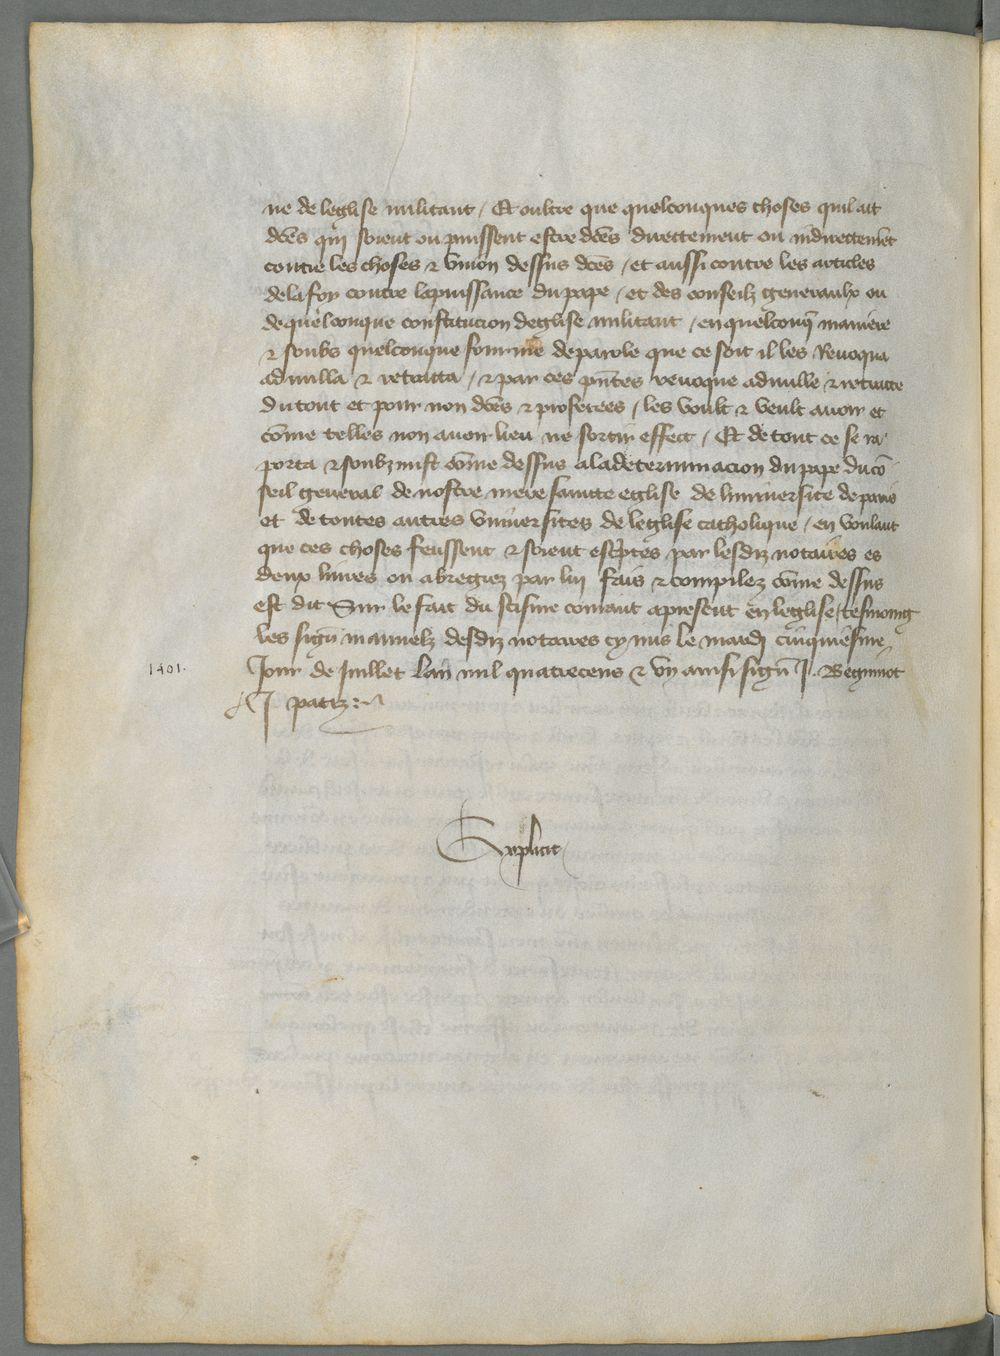 ne de leglise militant / Et oultre que quelconques choses quil ait
dc̃es qui soient ou puissent estre dc̃es directement ou indirectemẽt
contre les choses & vnion dessus dc̃es / et aussi contre les articles
de la foy contre la puissance du pape / et des conseilz generaulx ou
de quelconque constitucion deglise militant / en quelconq̃ maniere
& soubs quelconque fourme de parole que ce soit il les Reuoqua
adnulla & retracta / & par ces pñtes reuoque adnulle & retracte
du tout et pour non dc̃es & proferees / les voult & veult auoir et
cõme telles non auoir lieu ne sortir effect / Et de tout ce se ra
porta & soubzmist cõme dessus a la determinacion du pape du cõ
seil general de nostre mere saincte eglise de luniuersite de paris
et de toutes autres vniuersites de leglise catholique / en voulant
que ces choses feussent & soient escp̃tes par lesdiz notaires es
deux liures ou abregiez par lui fais & compilez cõme dessus
est dit Sur le fait du scisme courant apresent en leglise / tesmoing
les signs̃ manuelz desdiz notaires cy mis le mardj cinquiesme
1401.
Jour de Juillet Lan mil quatrecens & vng ainsi signẽ J. Beguinot
J patiz
Explicit